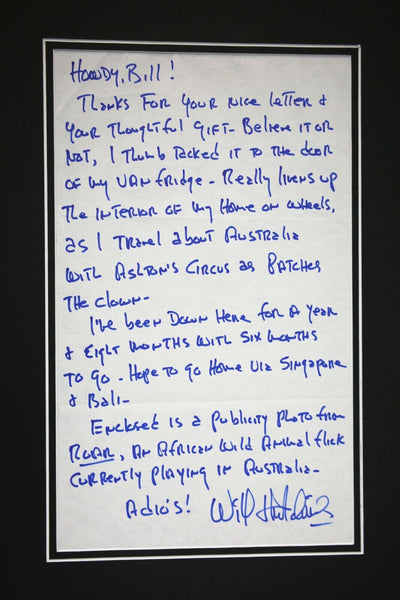 Howdy, Bill!
Thanks for your nice letter &
your thoughtful gift- Believe it or
not, I thumb tacked it to the door
of my van fridge- Really livens up
the interior of my home on wheels,
as I travel about Australia
with Ashton's Circus as Patches
the clown-
I've been down here for a year
& eight months with six months
to go- Hope to go home via Singapore
& Bali-
Enclosed is a publicity photo from
ROAR, an African wild animal flick
currently playing in Australia-
Adios! Will Hutchins